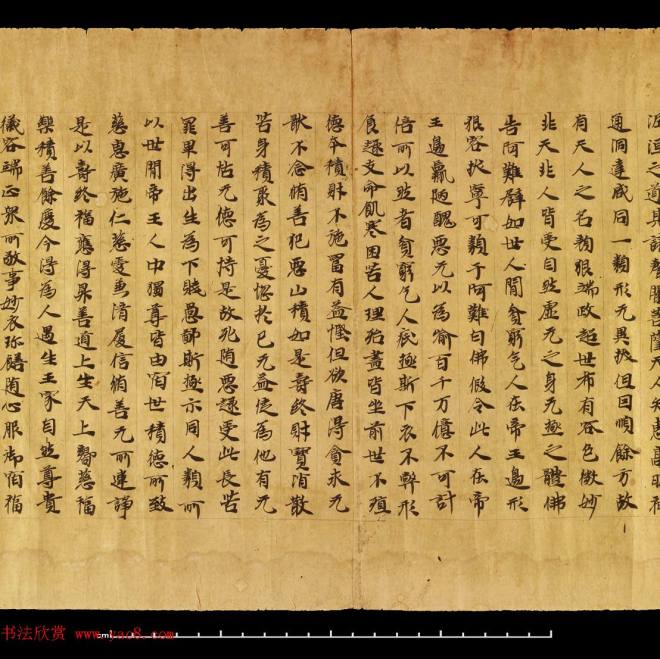 泥洹之道其諸聲聞菩薩天人知惠高明神
通洞達咸同一類形无異狀但因順餘方故
有天人之名顏貌端政超世希有容色微妙
非天非人皆受自然虛无之身无極之體佛
告阿難譬如世人間貧窮乞人在帝王邊形
貌容狀寧可類乎阿難白佛假令此人在帝
王邊羸陋醜惡无以為喻百千万億不可計
倍所以然者貧窮乞人底極斯下衣不弊形
食趣支命飢寒困苦人理殆盡皆坐前世不殖
德本積財不施富有益慳但欲唐得貪求无
猒不念脩善犯惡山積如是壽終財寶消散
苦身積聚為之憂惱於己无益徒為他有无
善可怙无德可恃是故死隨惡趣受此長苦
罪畢得出生為下賤愚鄙斯極示同人類所
以世間帝王人中獨尊皆由宿世積德所致
慈惠廣施仁慈愛兼濟履信脩善无所違諍
是以壽終福應得昇善道上生天上嚮慈福
樂積善餘慶今得為人遇生王家自然尊貴
儀容端正眾所敬事妙衣珍膳隨心服御宿福
书法欣赏 www.yac8.com
cm